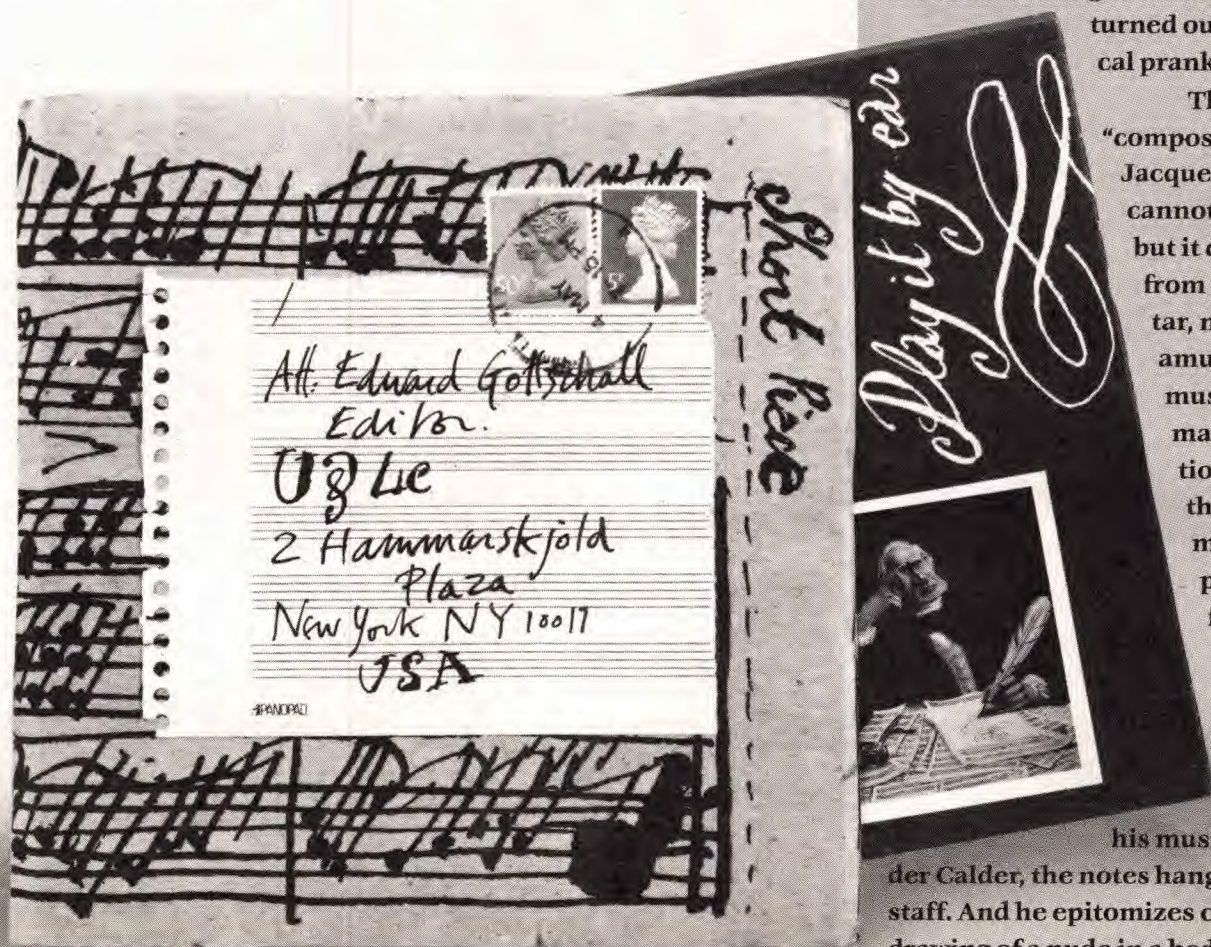 Att. Edward Gottschall
Editor.
U&lc
2 Hammarskjold
Plaza
New York NY 10017
USA
PANOPAD
Short Piece
5P
Play it by ear
turned ou
cal prank
Th
"compos
Jacque
cannot
but it
from
tar,
amu
mus
ma
tio
th
m
p
his mus
der Calder, the notes hang
staff. And he epitomizes